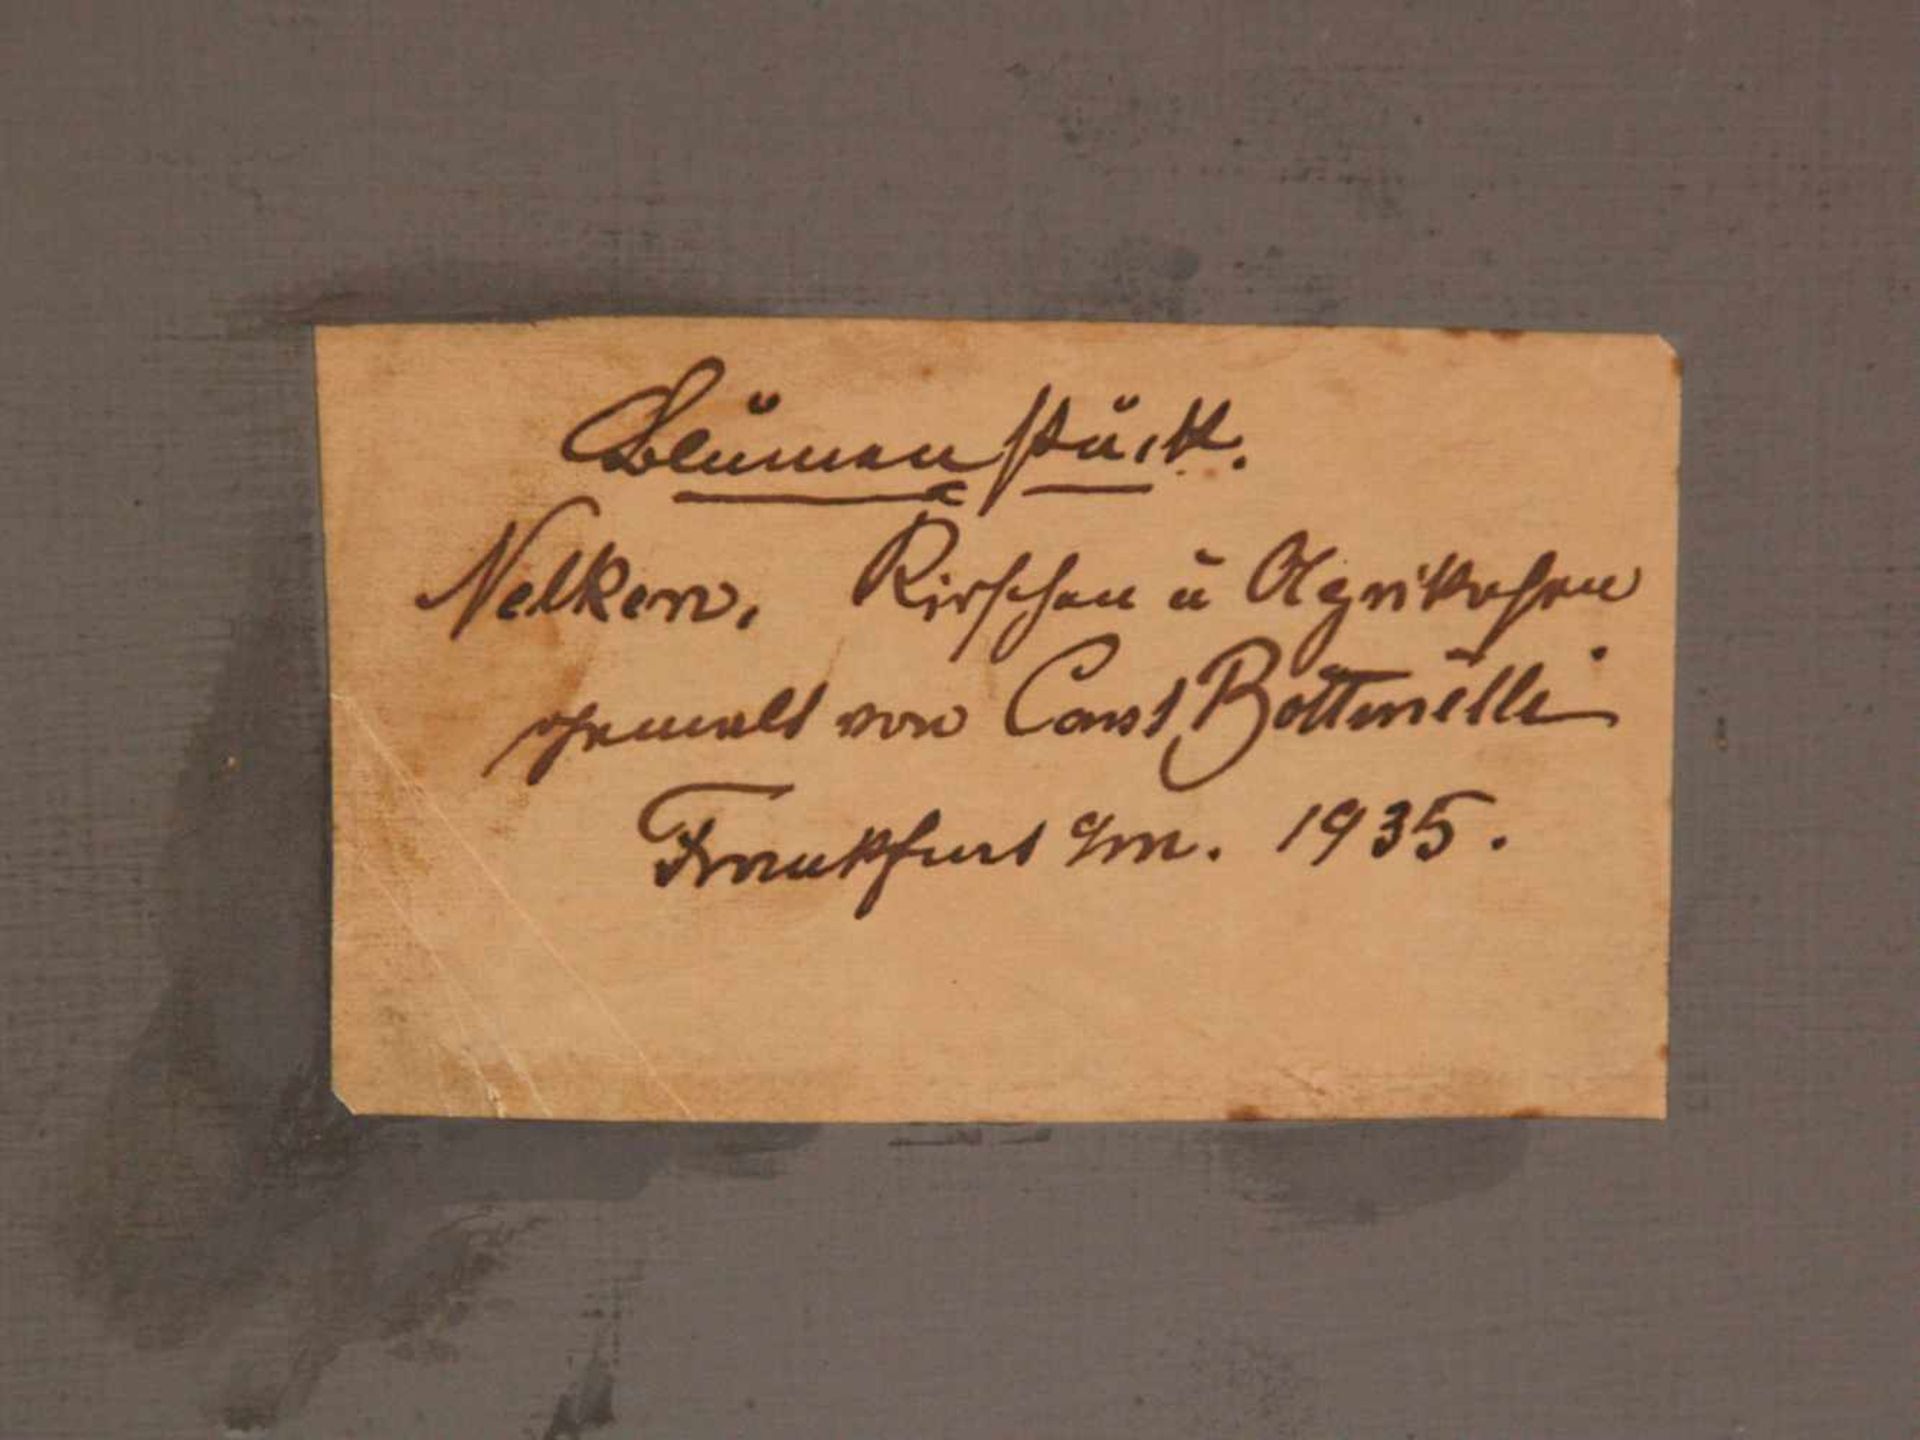 Blumenstück.
Nelken, Kirschen u Aprikosen
gemalt von Const Bottinelli
Frankfurt a/m. 1935.